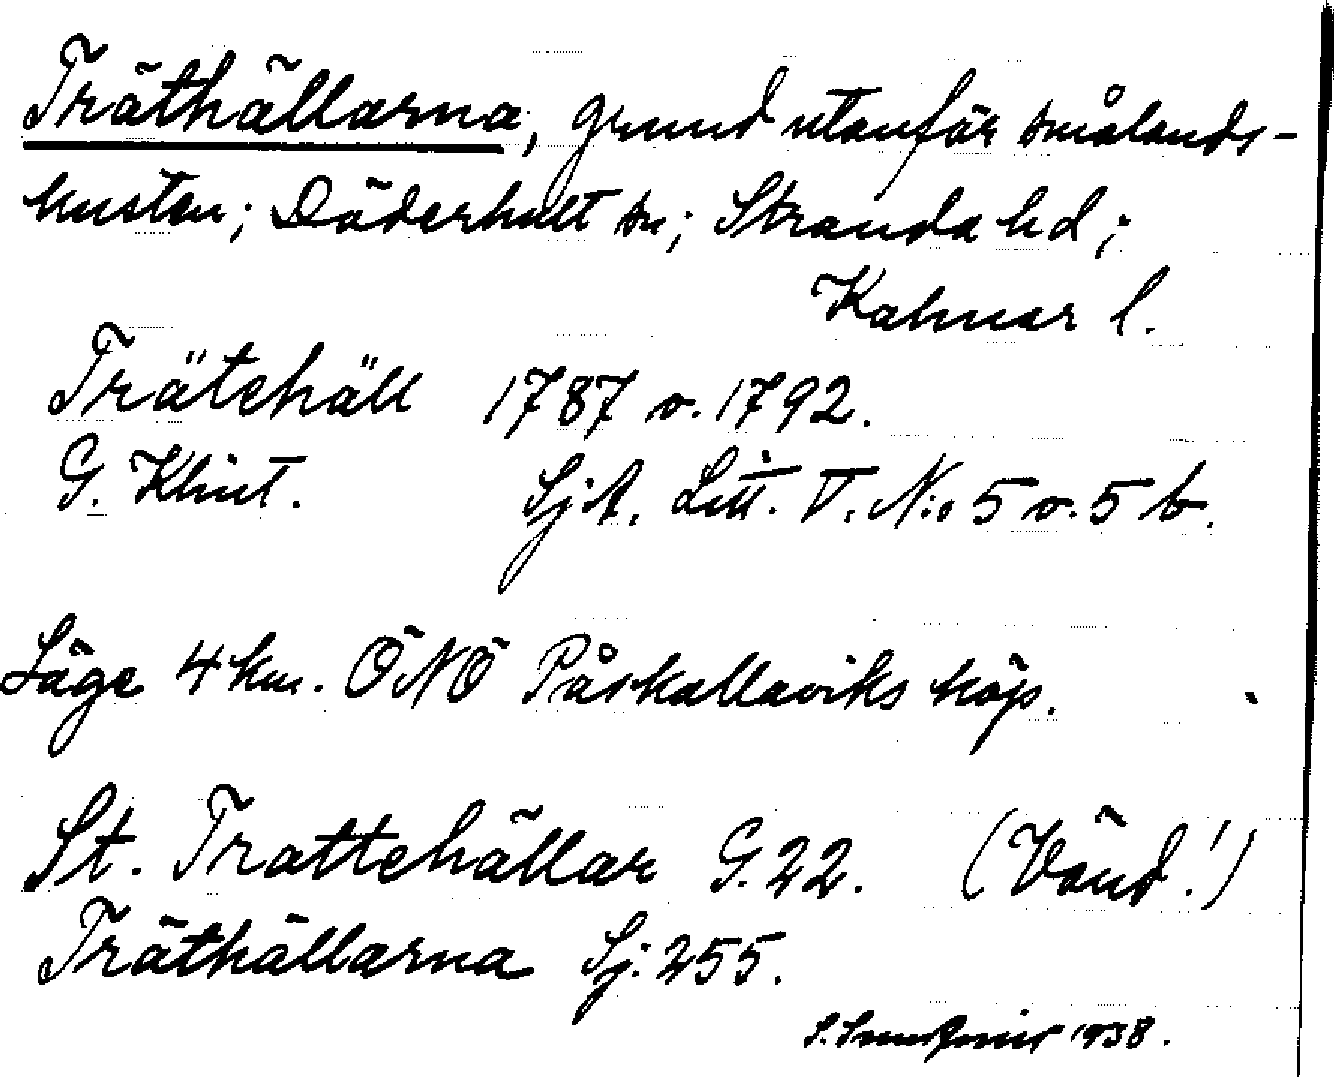 Träthällarna, grund utanför smålands-
kusten; Döderhult sn; Stranda hd;
Kalmar l.
Trätehäll 1787 o. 1792.
G. Klint. SjA. Litt. V. N:o 5 o. 5 b.
Läge 4 km. ÖNÖ Påskallaviks köp.
St. Trattehällar G. 22. (Vänd!)
Träthällarna Sj. 255.
S. 1938.